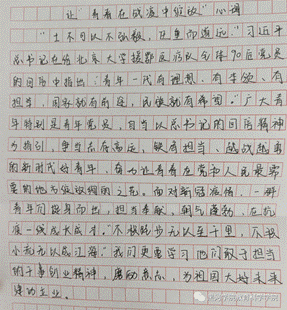 让“青春在战疫中绽放”心得
“士不可以不弘毅，任重而道远。”习近平
总书记在给北京大学援鄂医疗队全体90后党员
的回信中指出：青年一代有理想、有本领、有
担当，国家就有前途，民族就有希望。广大青
年特别是青年党员，自当以总书记的回信精神
为指引，争当志存高远、勇于担当、
的新时代好青年，奋力让青春在党和人民最需
要的地方绽放绚丽之花。面对新冠疫情，一群
青年们挺身而出，担当奉献，朝气蓬勃，在抗
疫一线成长成才。“不积跬步无以至千里，不积
小流无以成江海。”我们更要学习他们敢于担当
的干事创业精神，为祖国大好未来
建功立业。